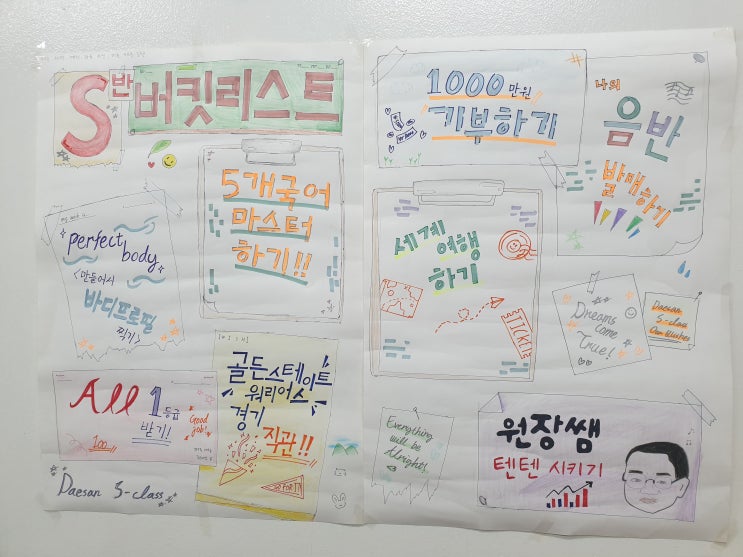 S반 버킷리스트
5개국어
마스터
하기!!
perfect
body
<만들어서
바디프로필
찍기>
All 1등급
받기!
Good
job!
100
골든스테이트
워리어스
경기
직관!!
SPORT
Daesan S-class
1000만원
기부하기
나의
음반
발매하기
세계여행
하기
TICKET
Dreams
come
True!
Daesan
S-class
Our Wishes
Everything
will be
Alright!
원장쌤
텐텐 시키기